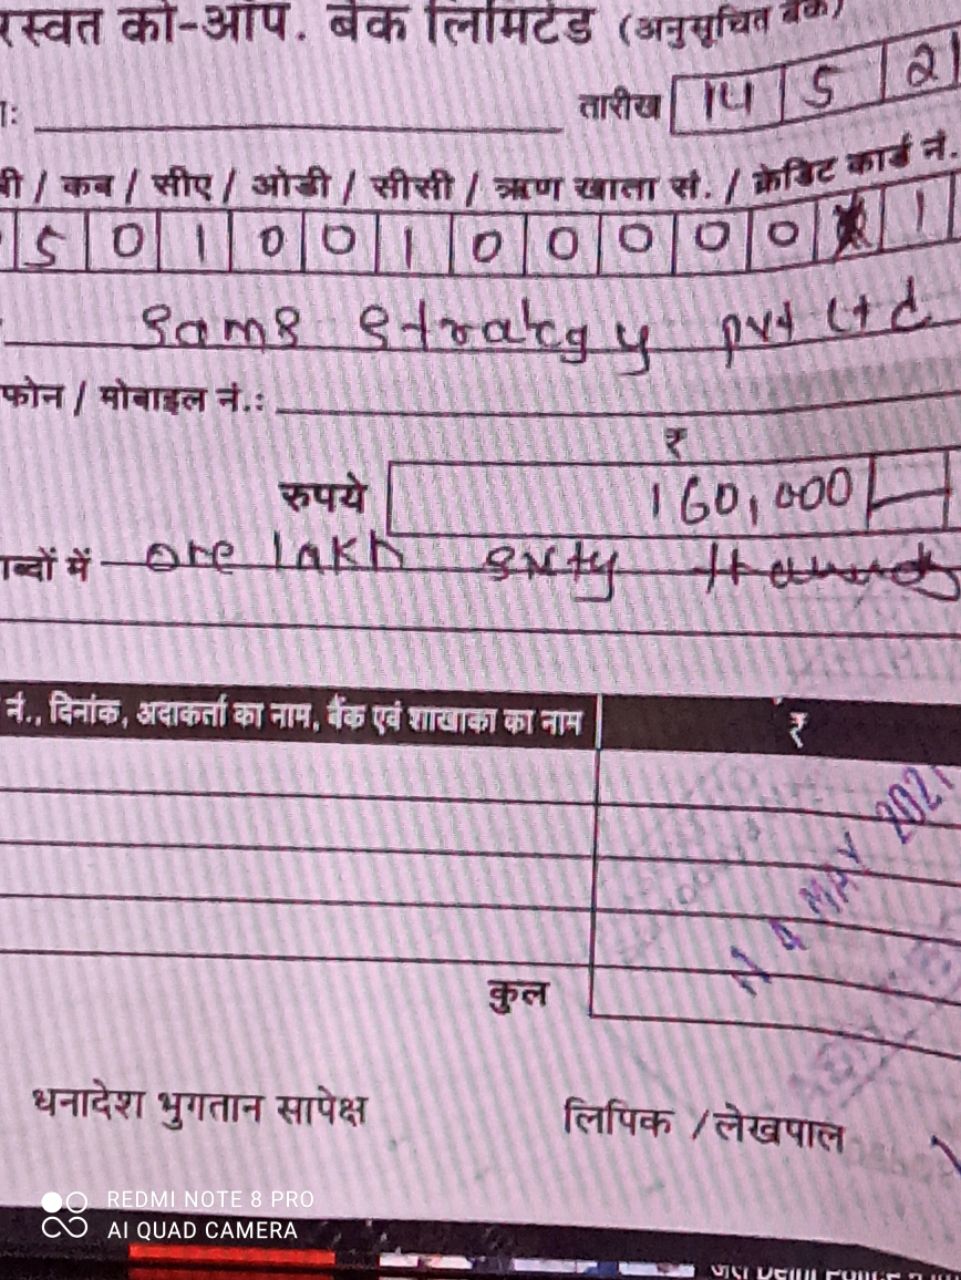 रस्वत को-ऑप. बैंक लिमिटेड (अनुसूचित बैंक)
तारीख 14 5 21
बी / कब / सीए / ओडी / सीसी / ऋण खाता सं. / क्रेडिट कार्ड नं.
5 0 1 0 0 1 0 0 0 0 0 1
Sams Strategy pvt Ltd
फोन / मोबाइल नं.:
₹
रुपये 160,000
ब्दों में one lakh sixty
नं., दिनांक, अदाकर्ता का नाम, बैंक एवं शाखाका का नाम ₹
14 MAY 2021
कुल
धनादेश भुगतान सापेक्ष लिपिक / लेखपाल
REDMI NOTE 8 PRO
AI QUAD CAMERA